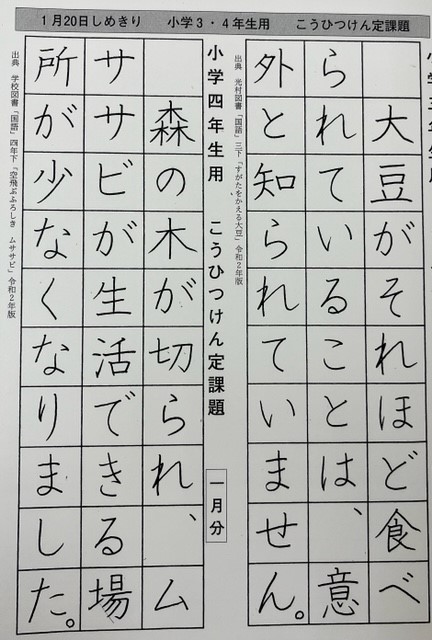 1月20日しめきり　小学3・4年生用　こうひつけん定課題
大豆がそれほど食べ
られていることは、意
外と知られていません。
出典　光村図書「国語」三下「すがたをかえる大豆」令和2年版
小学四年生用　こうひつけん定課題　一月分
森の木が切られ、ム
ササビが生活できる場
所が少なくなりました。
出典　学校図書「国語」四年下「空飛ぶふろしき　ムササビ」令和2年版